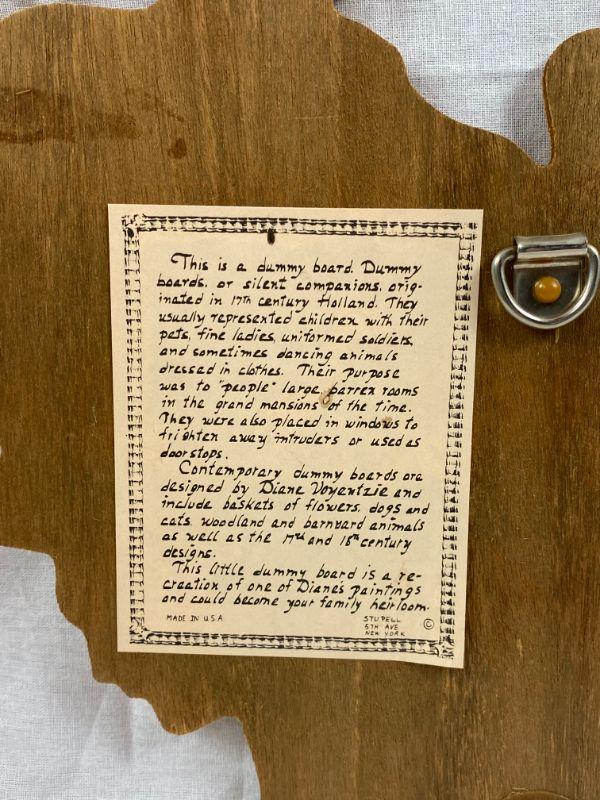 This is a dummy board. Dummy
boards, or silent companions, orig-
inated in 17th century Holland. They
usually represented children with their
pets, fine ladies, uniformed soldiers,
and sometimes dancing animals
dressed in clothes. Their purpose
was to "people" large, barren rooms
in the grand mansions of the time.
They were also placed in windows to
frighten away intruders or used as
doorstops.
Contemporary dummy boards are
designed by Diane Voyentzie and
include baskets of flowers, dogs and
cats, woodland and barnyard animals
as well as the 17th and 18th century
designs.
This little dummy board is a re-
creation of one of Diane's paintings
and could become your family heirloom.
MADE IN U.S.A
STUPELL ©
5TH AVE
NEW YORK